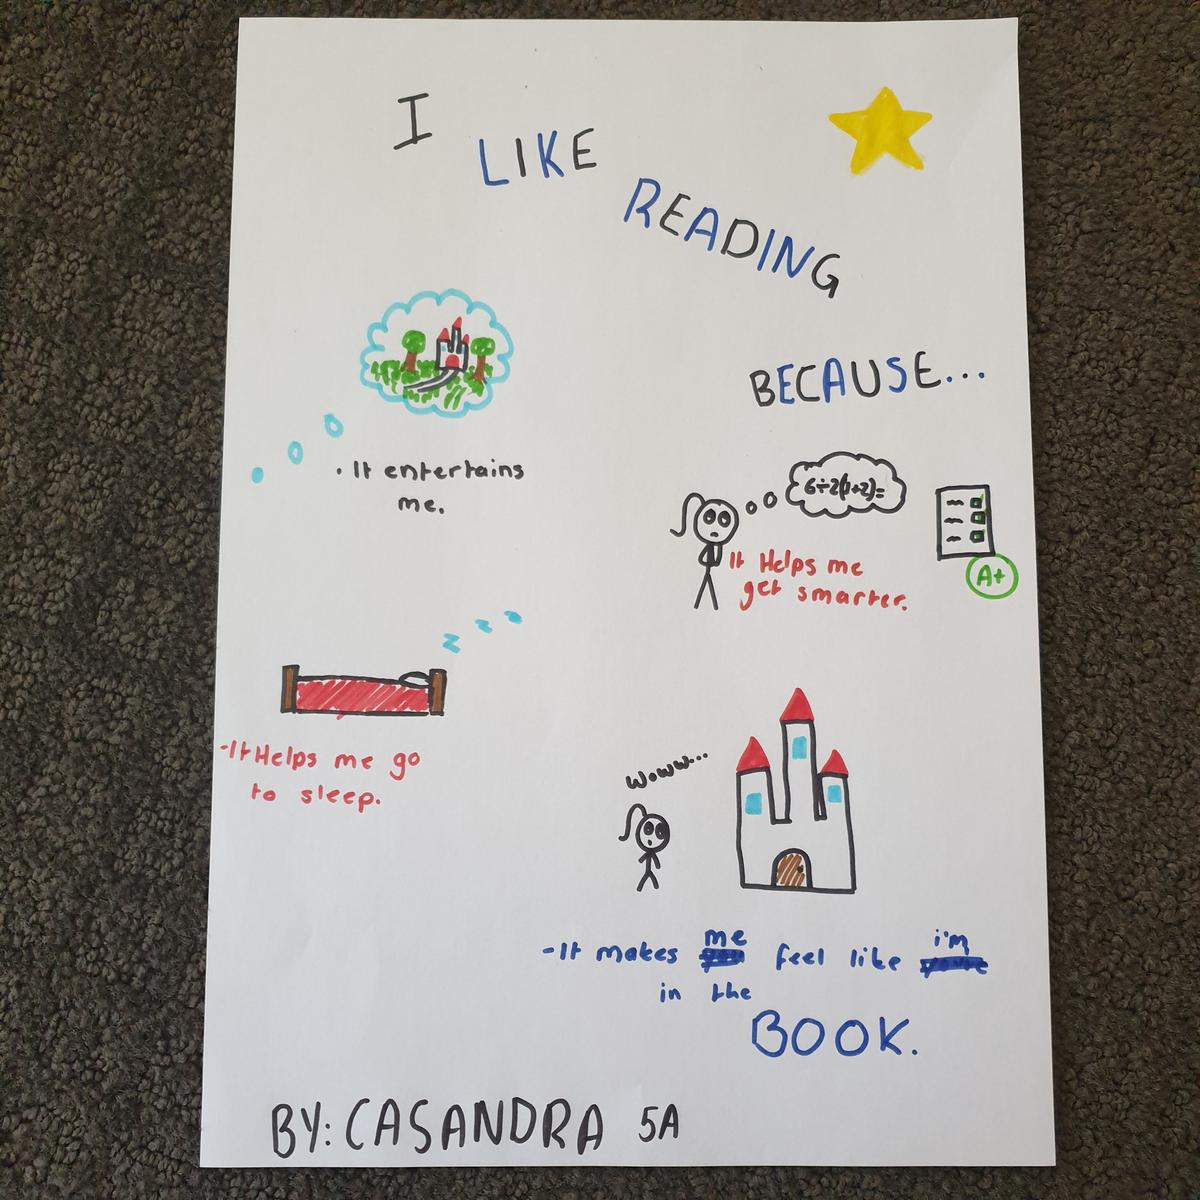 I
LIKE
READING
BECAUSE...
• It entertains
me.
6÷2(1+2)=
It Helps me
get smarter.
A+
z z z
-It Helps me go
to sleep.
Woww...
-It makes me feel like i'm
in the
BOOK.
BY: CASANDRA 5A